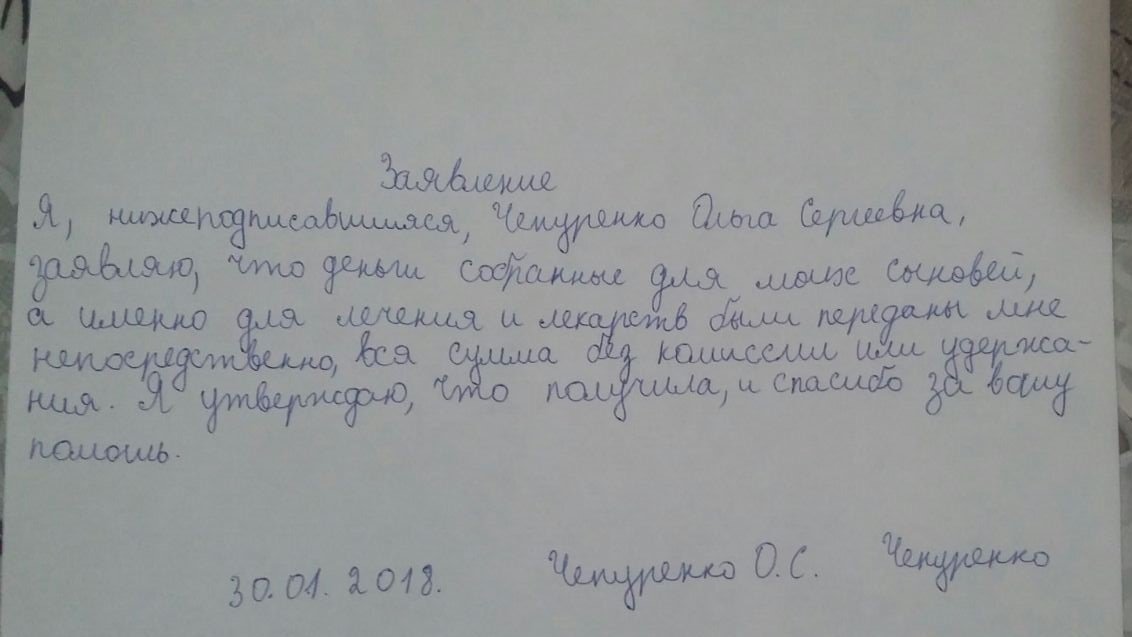 Заявление
Я, нижеподписавшияся, Чепуренко Ольга Сергеевна,
заявляю, что деньги собранные для моих сыновей,
а именно для лечения и лекарств были переданы мне
непосредственно, вся сумма без комиссии или удержа-
ния. Я утверждаю, что получила, и спасибо за вашу
помошь.
30.01.2018. Чепуренко О.С. Чепуренко